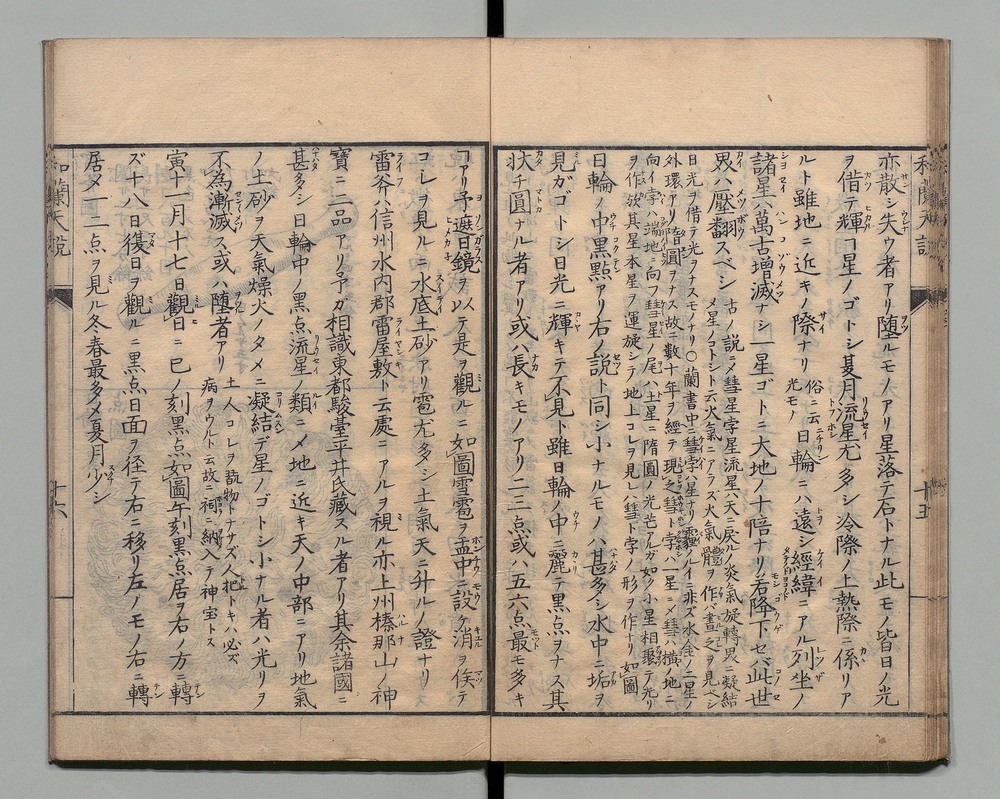 和蘭天説
十五
亦散シ失ウ者アリ堕ルモノアリ星落テ石トナル此モノ皆日ノ光
ヲ借テ輝コ星ノゴトシ夏月流星尤多シ冷際ノ上熱際ニ係リア
ルト雖地ニ近キノ際ナリ俗ニ云光モノ日輪ニハ遠シ經緯ニアル列坐ノ
諸星ハ萬古增減ナシ一星ゴトニ大地ノ十陪ナリ若降下セバ此世
界ハ壓翻スベシ古ノ説ニメ彗星孛星流星ハ天ニ戻ル炎氣旋轉シ凝結
メ星ノコトシト云火氣ニアラズ火氣體ヲ作バ晝之ヲ見ベシ
日光ヲ借テ光ヲナスモノナリ○蘭書中ニ彗孛ハ星ナリ ノルイニ非ズ水金ノ二星ノ
外ニ環アリ隋圓ヲナス故ニ數十年ヲ經テ現之彗ト孛ハ一星ニメ彗ハ橫地ニ
向イ孛ハ端地ニ向フ彗星ノ尾ハ土星ニ隋圓ノ光芒アルガ如ク小星相聚テ光リ
ヲ作故其星本星ヲ運旋シテ地上コレヲ見レハ彗ト孛ノ形ヲ作ナリ如圖
日輪ノ中黒點アリ右ノ説ト同シ小ナルモノハ甚多シ水中ニ垢ヲ
見ガゴトシ日光ニ輝キテ不見ト雖日輪ノ中ニ麗テ黒点ヲナス其
状チ圓ナル者アリ或ハ長キモノアリ二三点或ハ五六点最モ多キ
コアリ予遮日鏡ヲ以テ是ヲ觀ルニ如圖雪雹ヲ盂中ニ設ケ消ヲ俟テ
コレヲ見ルニ水底土砂アリ雹尤多シ土氣天ニ升ルノ證ナリ
雷斧ハ信州水内郡雷屋敷ト云處ニアルヲ視ル亦上州榛那山ノ神
寶ニ二品アリ予ガ相識東都駿臺平井氏藏スル者アリ其余諸國ニ
甚多シ日輪中ノ黒点流星ノ類ニメ地ニ近キ天ノ中部ニアリ地氣
ノ土砂ヲ天氣燥火ノタメニ凝結デ星ノゴトシ小ナル者ハ光リヲ
不為漸滅ス或ハ堕者アリ土人コレヲ翫物トナサズ人把トキハ必ズ
病ヲウルト云故ニ祠ニ納入テ神宝トス
寅十一月十七日觀日ニ巳ノ刻黒点如圖午刻黒点居ヲ右ノ方ニ轉
ズ十八日復日ヲ觀ルニ黒点日面ヲ径テ右ニ移リ左ノモノ右ニ轉
居メ一二点ヲ見ル冬春最多メ夏月少シ
和蘭天説
十六